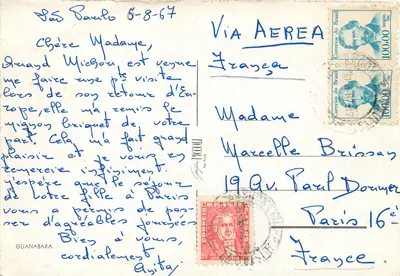 São Paulo 5-8-67
Chère Madame,
Quand Michou est venue
me faire une pte visite
lors de son retour d'Eu-
rope, elle m'a remis le
mignon briquet de votre
part. Cela m'a fait grand
plaisir et je vous en
remercie infiniment.
J'espère que le séjour
de votre fille à Paris
vous a permis de pas-
ser d'agréables journées
Bien à vous,
cordialement
Anita
GUANABARA
Via AEREA
França
Madame
Marcelle Brissan
19 Av. Paul Doumer
Paris 16e
France.
Correio do Brasil
100,00
Correio do Brasil
100,00
CORREIO